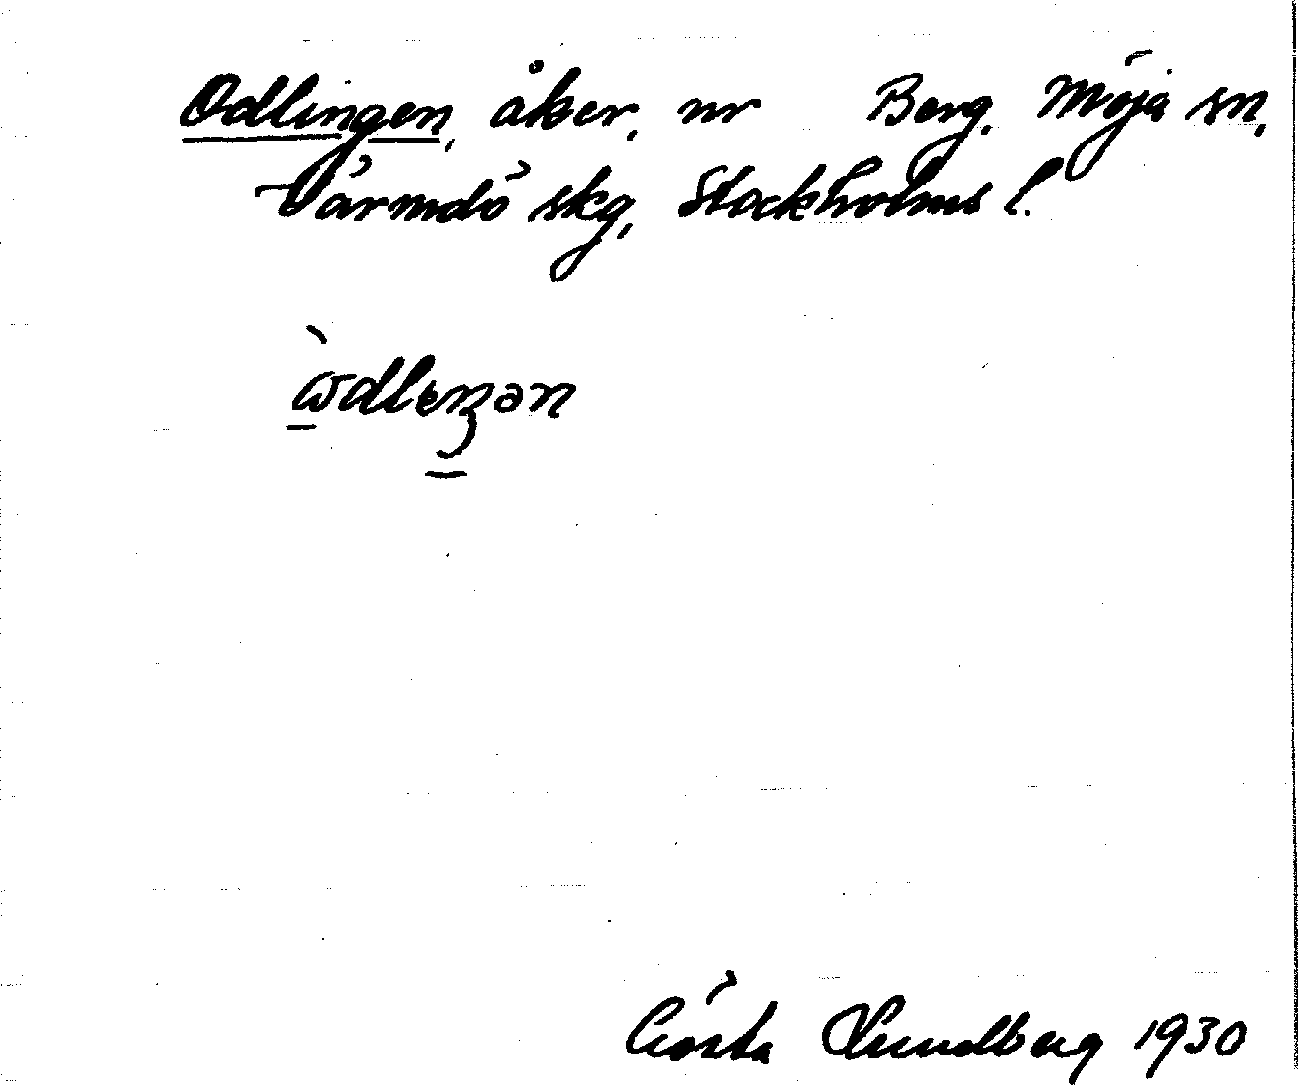 Odlingen, åker, nr Berg, Möja sn,
Värmdö skg, Stockholms l.
Gösta Lundberg 1930